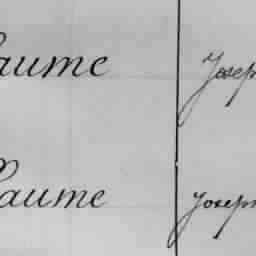 aume Josep
laume Joseph